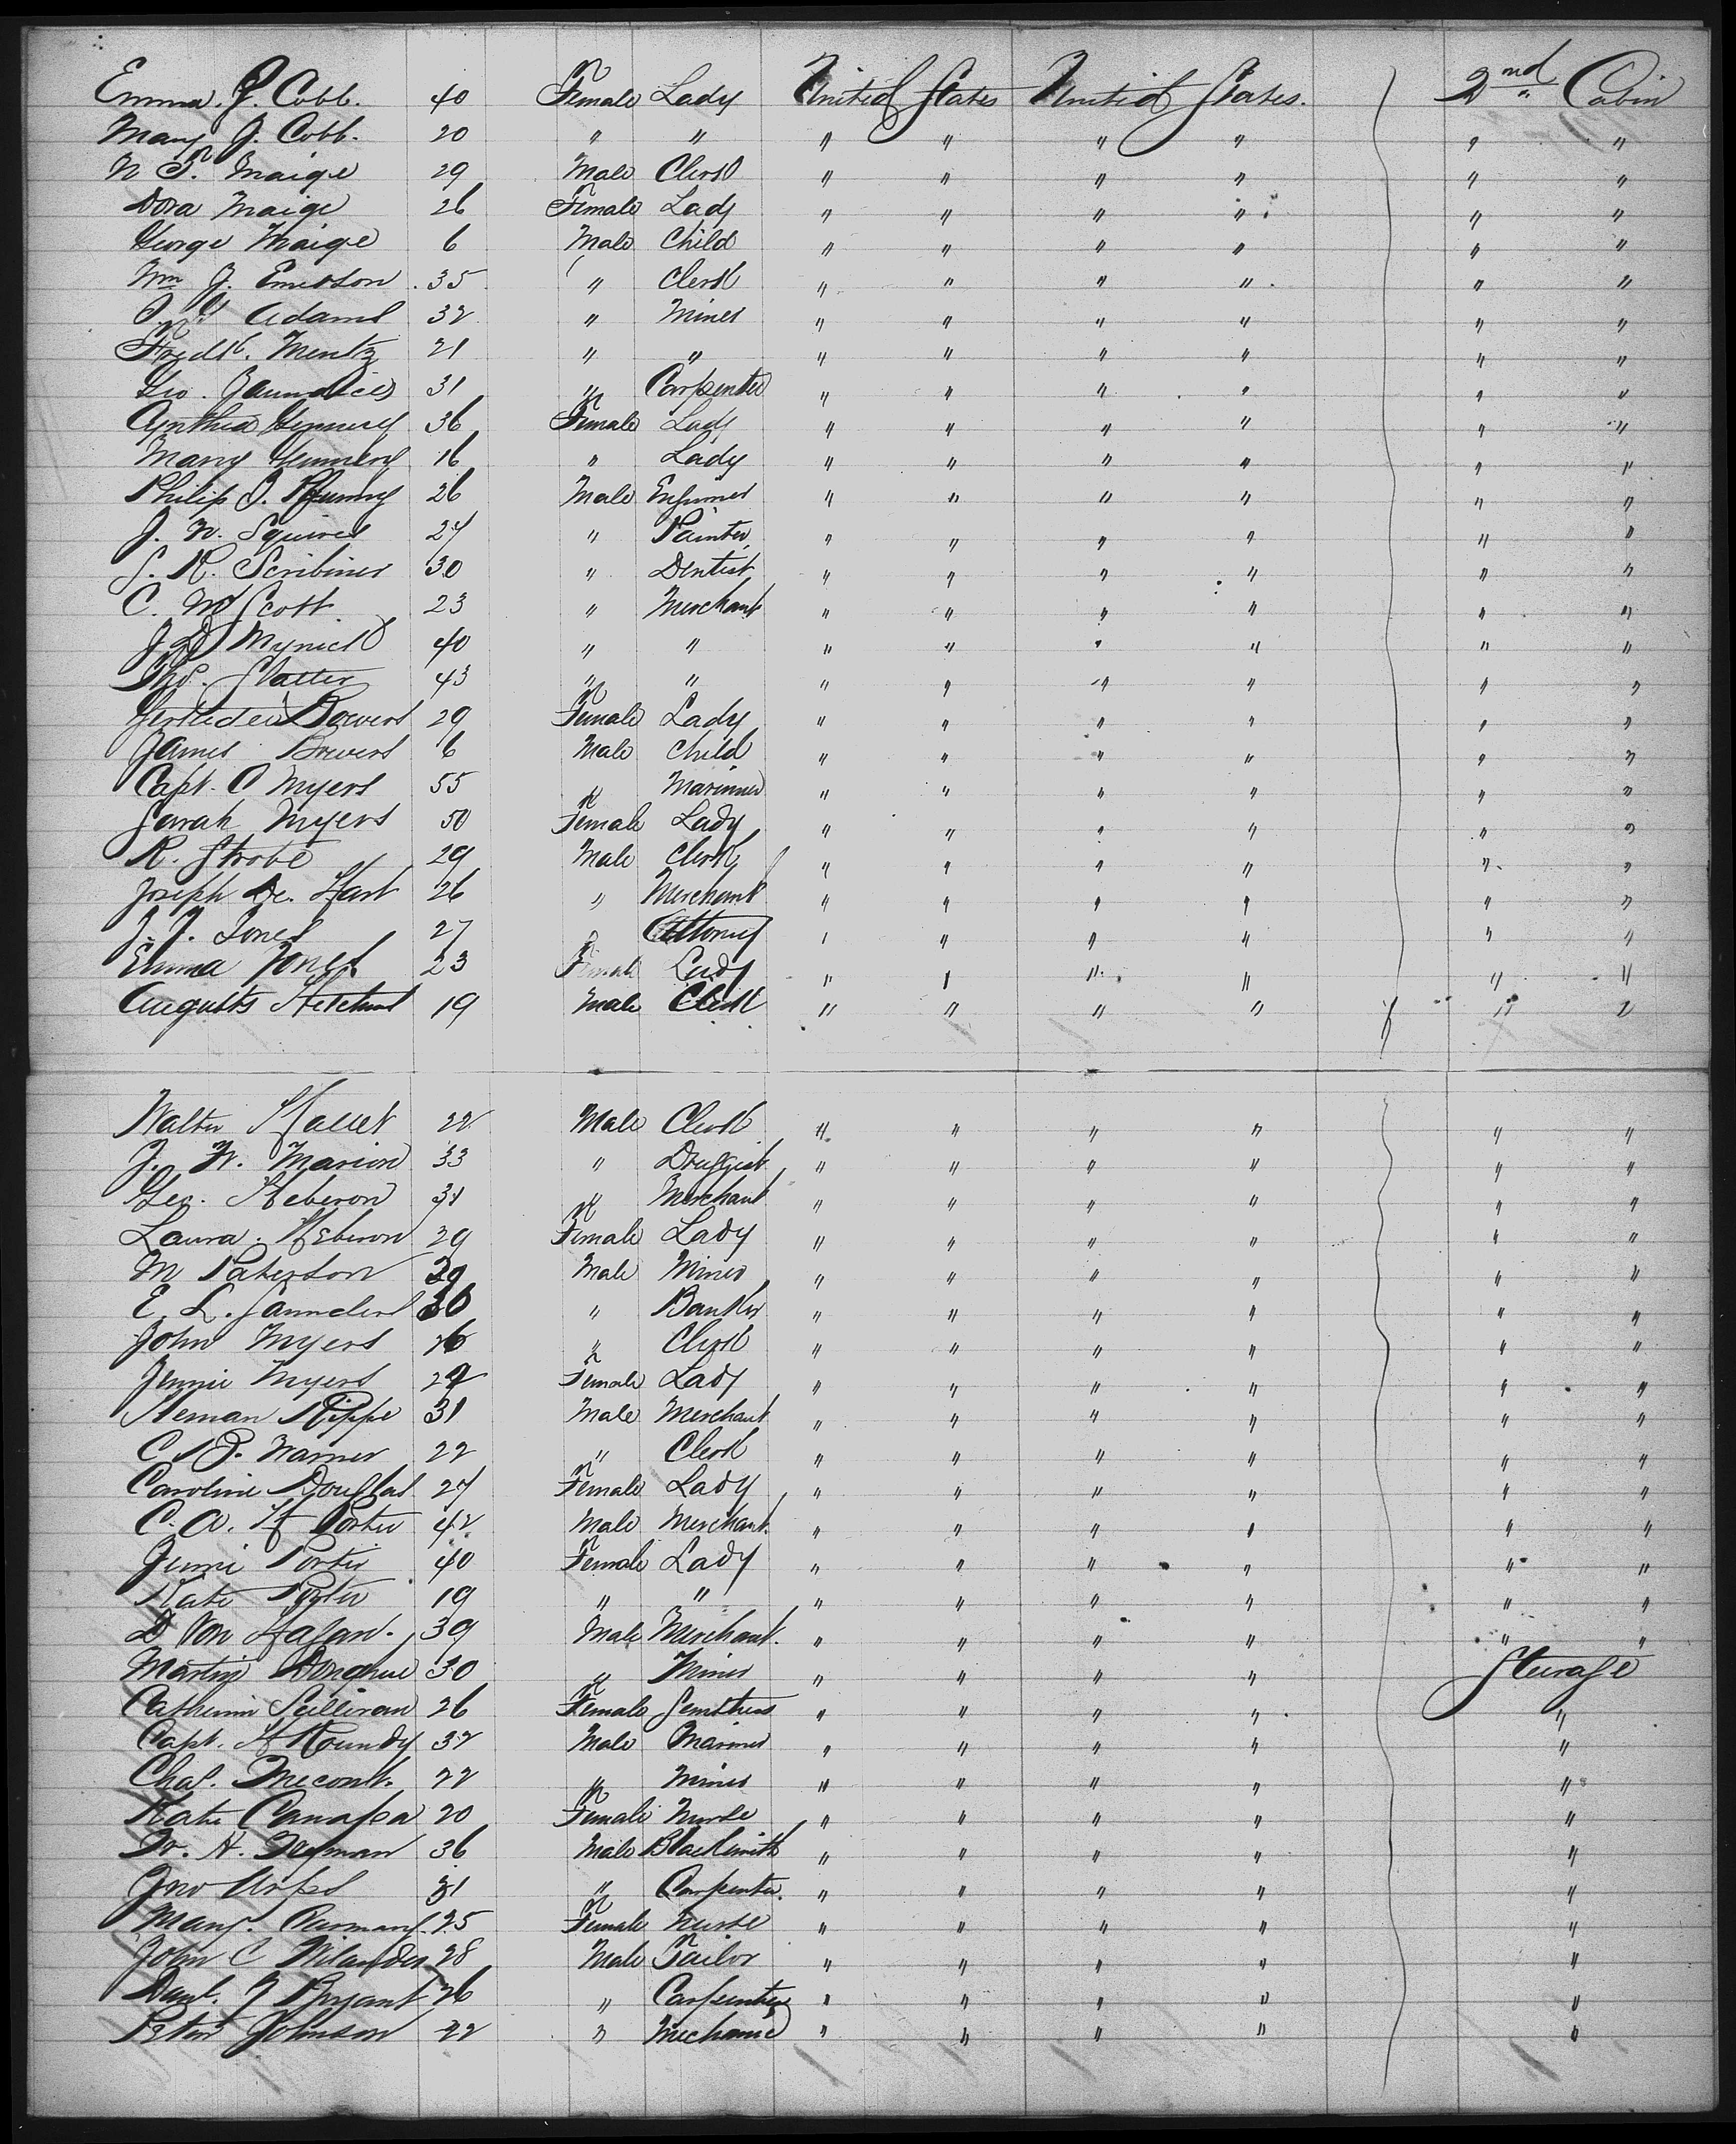 Emma. J. Cobb. 40 Female Lady United States United States. 2nd Cabin
Mary J. Cobb. 20 " " " " " " " "
N T. Maige 29 Male Clerk " " " " " "
Dora Maige 26 Female Lady " " " " " "
George Maige 6 Male Child " " " " " "
Wm J. Emerson 35 " Clerk " " " " " "
Adams 32 " Miner " " " " " "
Fredk. Mentz 21 " " " " " " " "
Geo. 31 " Carpenter " " " " " "
Cynthia 36 Female Lady " " " " " "
Mary 16 " Lady " " " " " "
Philip J. 26 Male Engineer " " " " " "
J. W. Squires 24 " Painter " " " " " "
S. R. Scribiner 30 " Dentist " " " " " "
C. W Scott 23 " Merchant " " " " " "
J D Mynick 40 " " " " " " " "
Slatter 43 " " " " " " " "
Bowers 29 Female Lady " " " " " "
James Bowers 6 Male Child " " " " " "
Capt. C Myers 55 " Marinner " " " " " "
Sarah Myers 50 Female Lady " " " " " "
R. Strobe 29 Male Clerk " " " " " "
Joseph De. Hart 26 " Merchant " " " " " "
J. J. Jones 27 " Attorney " " " " " "
Emma Jones 23 Female Lady " " " " " "
Augusts 19 Male Clerk " " " " " "
Walter 22 Male Clerk " " " " " "
J. W. Marion 33 " Druggist " " " " " "
Geo. Heberon 31 " Merchant " " " " " "
Laura. Heberon 29 Female Lady " " " " " "
M Paterson 29 Male Miner " " " " " "
E. L. Saunders 30 " Banker " " " " " "
John Myers 26 " Clerk " " " " " "
Jennie Myers Female Lady " " " " " "
Heman Rippe 31 Male Merchant " " " " " "
C B. Warner 22 " Clerk " " " " " "
Caroline Douglas 24 Female Lady " " " " " "
C. A. H Porter 42 Male Merchant " " " " " "
Jennie Porter 40 Female Lady " " " " " "
Kate Porter 19 " " " " " " " "
D Von Hagan. 39 Male Merchant. " " " " " "
Martin Donahue 30 " Miner " " " " Steerage
Catherine Sullivan 26 Female Semstress " " " " "
Capt. H Roundy 32 Male Mariner " " " " "
Chas. 22 " Miner " " " " "
Kate Canapa 20 Female Nurse " " " " "
36 Male Blacksmith " " " " "
Jno 31 " Carpenter. " " " " "
Mary. 25 Female Nurse " " " " "
John C 28 Male Tailor " " " " "
Danl. J Bryant 26 " Carpenter " " " " "
Peter Johnson 22 " Mechanic " " " " "